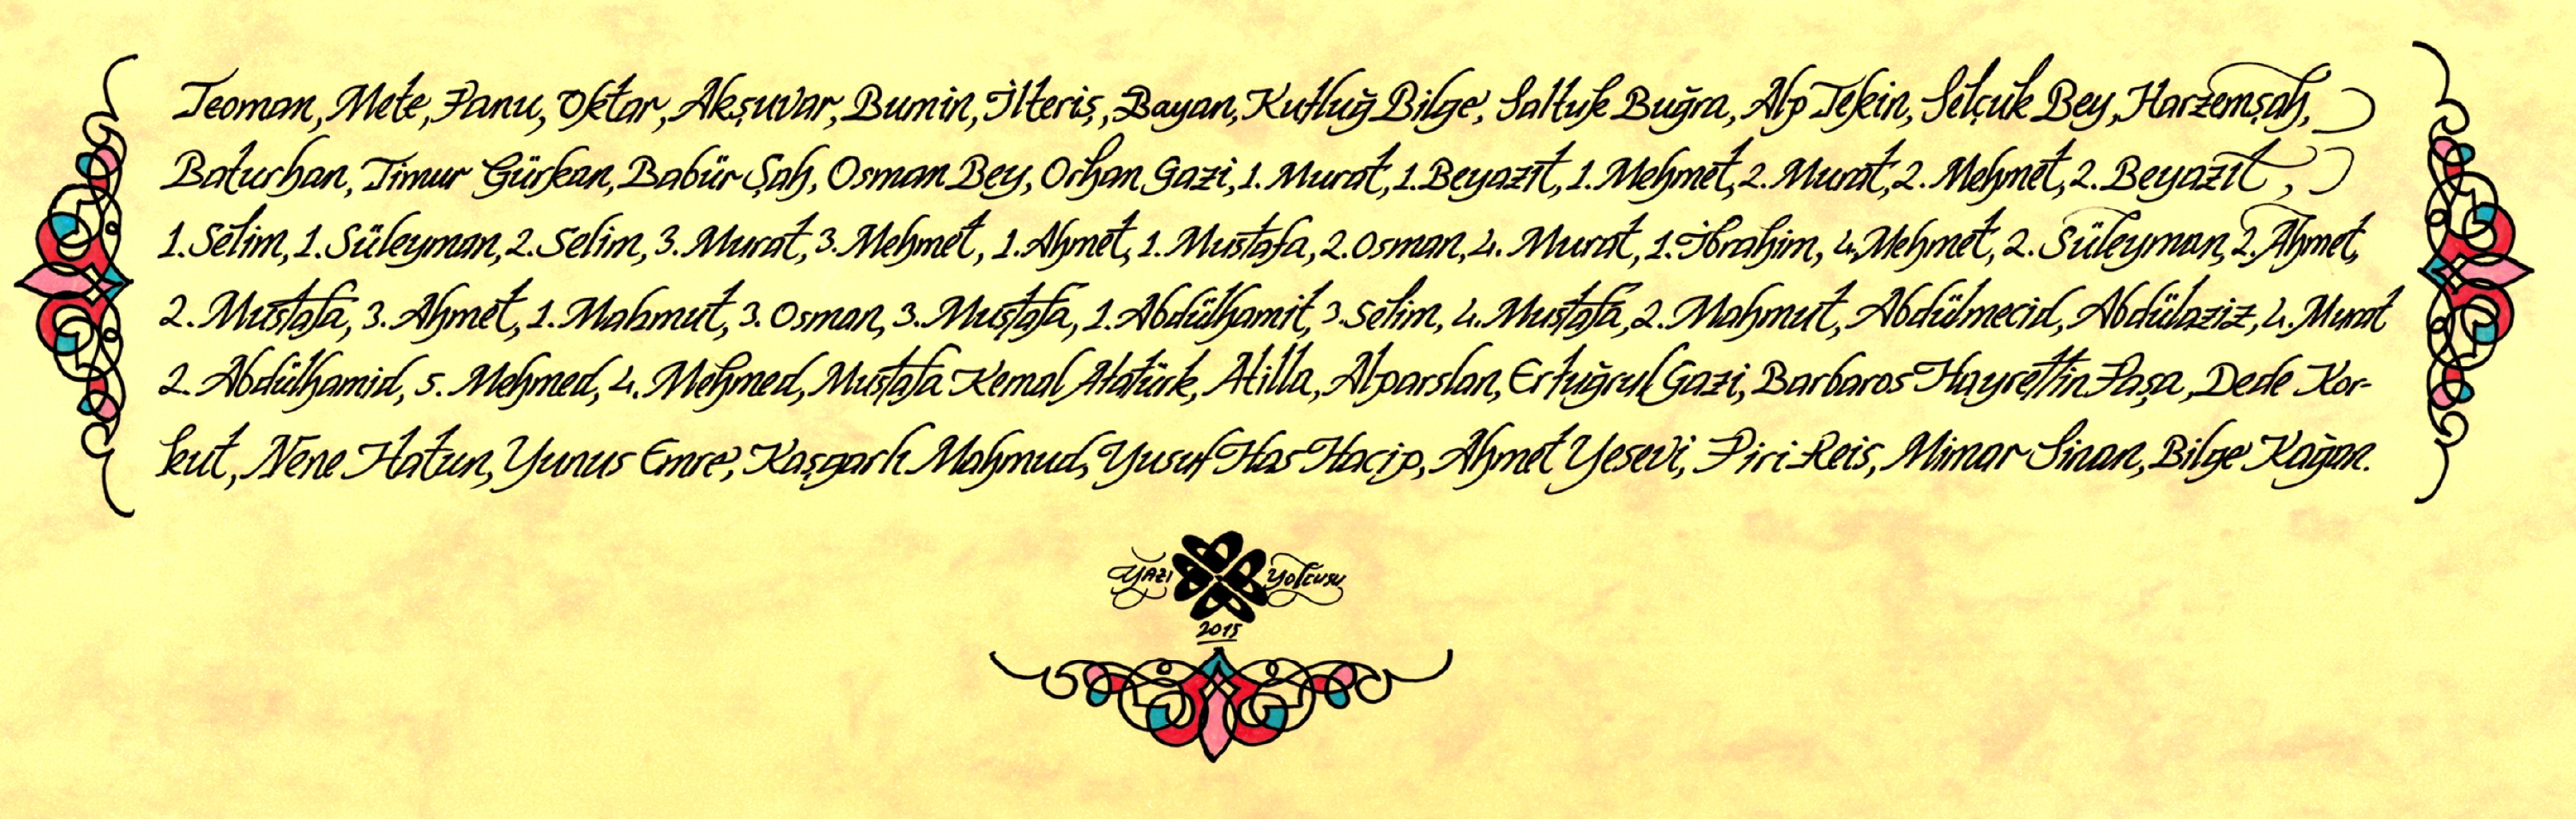 Teoman, Mete, Panu, Oktar, Akşuvar, Bumin, İlteriş, Bayan, Kutluğ Bilge, Saltuk Buğra, Alp Tekin, Selçuk Bey, Harzemşah,
Baturhan, Timur Gürkan, Babür Şah, Osman Bey, Orhan Gazi, 1. Murat, 1. Beyazıt, 1. Mehmet, 2. Murat, 2. Mehmet, 2. Beyazıt,
1. Selim, 1. Süleyman, 2. Selim, 3. Murat, 3. Mehmet, 1. Ahmet, 1. Mustafa, 2. Osman, 4. Murat, 1. İbrahim, 4. Mehmet, 2. Süleyman, 2. Ahmet,
2. Mustafa, 3. Ahmet, 1. Mahmut, 3. Osman, 3. Mustafa, 1. Abdülhamit, 3. Selim, 4. Mustafa, 2. Mahmut, Abdülmecid, Abdülaziz, 4. Murat
2. Abdülhamid, 5. Mehmed, 4. Mehmed, Mustafa Kemal Atatürk, Atilla, Alparslan, Ertuğrul Gazi, Barbaros Hayrettin Paşa, Dede Kor-
kut, Nene Hatun, Yunus Emre, Kaşgarlı Mahmud, Yusuf Has Hacip, Ahmet Yesevi, Piri Reis, Mimar Sinan, Bilge Kağan.
Yazı Yolcusu
2015